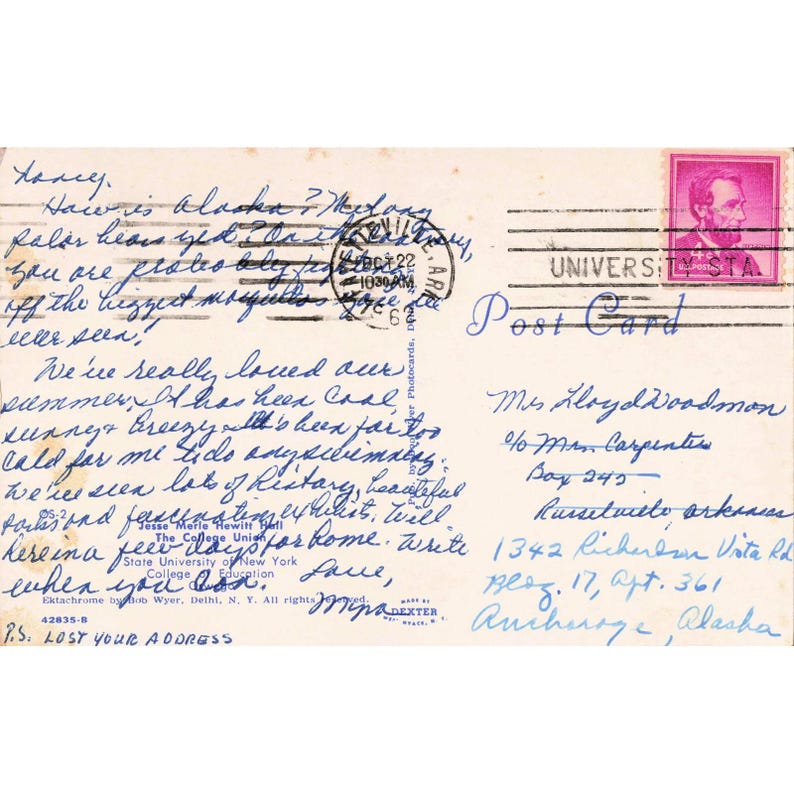 Nancy,
How is Alaska? Met any
polar bears yet? On the contrary,
you are probably fighting
off the biggest mosquitos you've
ever seen!
We've really loved our
summer. It has been cool,
sunny & breezy. It's been far too
cold for me to do any swimming.
We've seen lots of history, beautiful
and fascinating exhibits. Will
here in a few days for home. Write
when you can. Love,
P.S. LOST YOUR ADDRESS
OS-2
Jesse Merle Hewitt Hall
The College Union
State University of New York
College of Education
Ektachrome by Bob Wyer, Delhi, N. Y. All rights reserved.
42835-B
MADE BY
DEXTER
WEST NYACK, N. Y.
FAYETTEVILLE, ARK
OCT 22
10 30 AM
1962
UNIVERSITY STA.
4¢
U.S. POSTAGE
Post Card
Mrs Lloyd Woodmon
c/o Mrs. Carpenter
Box 245
Russelville, Arkansas
1342 Richardson Vista Rd
Bldg. 17, Apt. 361
Anchorage, Alaska